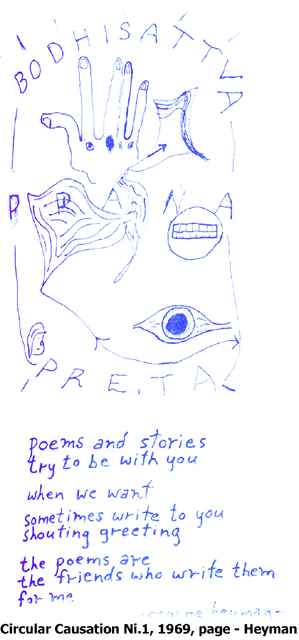 BODHISATTVA
PRANA
PRETA
poems and stories
try to be with you
when we want
sometimes write to you
shouting greeting
the poems are
the friends who write them
for me
-george heyman-
Circular Causation Ni.1, 1969, page - Heyman